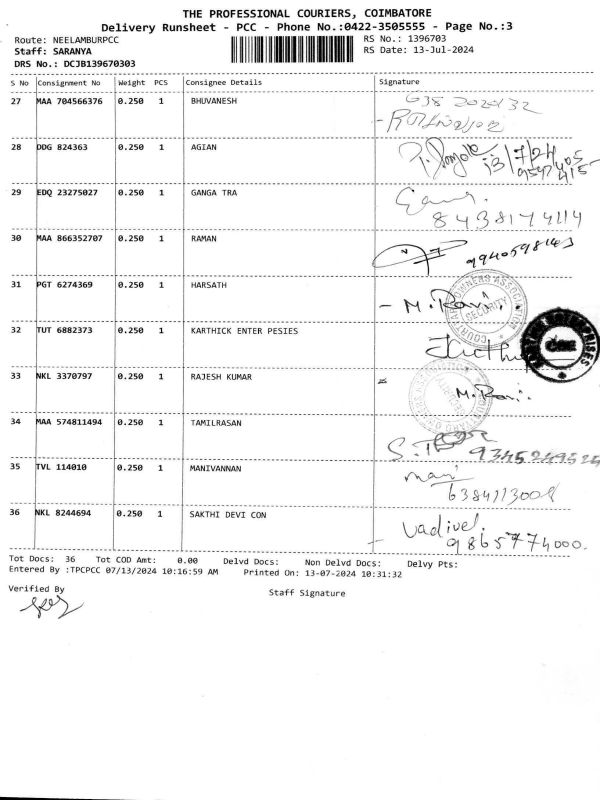 THE PROFESSIONAL COURIERS, COIMBATORE
Delivery Runsheet - PCC - Phone No.:0422-3505555 - Page No.:3
Route: NEELAMBURPCC RS No.: 1396703
Staff: SARANYA RS Date: 13-Jul-2024
DRS No.: DCJB139670303
S No Consignment No Weight PCS Consignee Details Signature
27 MAA 704566376 0.250 1 BHUVANESH
28 DDG 824363 0.250 1 AGIAN 13/7/24
29 EDQ 23275027 0.250 1 GANGA TRA
8438174114
30 MAA 866352707 0.250 1 RAMAN
31 PGT 6274369 0.250 1 HARSATH - M. Ravi.
COURTYARD OWNERS ASSOCIATION
SECURITY
32 TUT 6882373 0.250 1 KARTHICK ENTER PESIES
33 NKL 3370797 0.250 1 RAJESH KUMAR M. Ravi.
34 MAA 574811494 0.250 1 TAMILRASAN
9345249525
35 TVL 114010 0.250 1 MANIVANNAN mani
6384113008
36 NKL 8244694 0.250 1 SAKTHI DEVI CON vadivel.
9865774000.
Tot Docs: 36 Tot COD Amt: 0.00 Delvd Docs: Non Delvd Docs: Delvy Pts:
Entered By :TPCPCC 07/13/2024 10:16:59 AM Printed On: 13-07-2024 10:31:32
Verified By Staff Signature